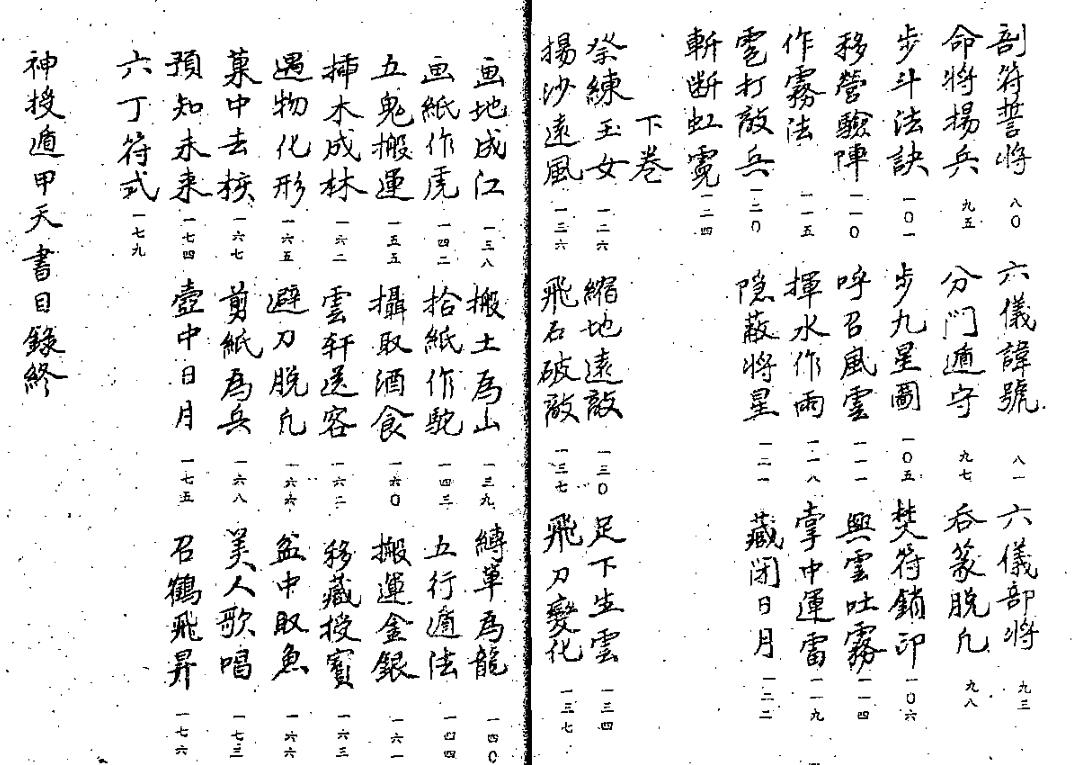 剖符誓將 八〇 六儀諱號 八一 六儀部將 九三
命將揚兵 九五 分門遁守 九七 吞篆脫凡 九八
步斗法訣 一〇一 步九星圖 一〇五 焚符銷印 一〇六
移營驗陣 一一〇 呼召風雲 一一一 興雲吐霧 一一四
作霧法 一一五 揮水作雨 一一八 掌中運雷 一一九
雹打敵兵 一二〇 隐蔽將星 一二一 藏閉日月 一二二
斬断虹霓 一二四
下卷
祭練玉女 一二六 縮地遠敵 一三〇 足下生雲 一三四
揚沙遠風 一三六 飛石破敵 一三七 飛刀變化 一三七
画地成江 一三八 搬土為山 一三九 縛草為龍 一四〇
画紙作虎 一四二 拾紙作駝 一四三 五行遁法 一四四
五鬼搬運 一五五 攝取酒食 一六〇 搬運金銀 一六一
插木成林 一六二 雲軒送客 一六二 移藏授寶 一六三
遇物化形 一六五 避刀脫凡 一六六 盆中取魚 一六六
菓中去核 一六七 剪紙為兵 一六八 美人歌唱 一七三
預知未来 一七四 壺中日月 一七五 召鶴飛昇 一七六
六丁符式 一七九
神授遁甲天書目錄終